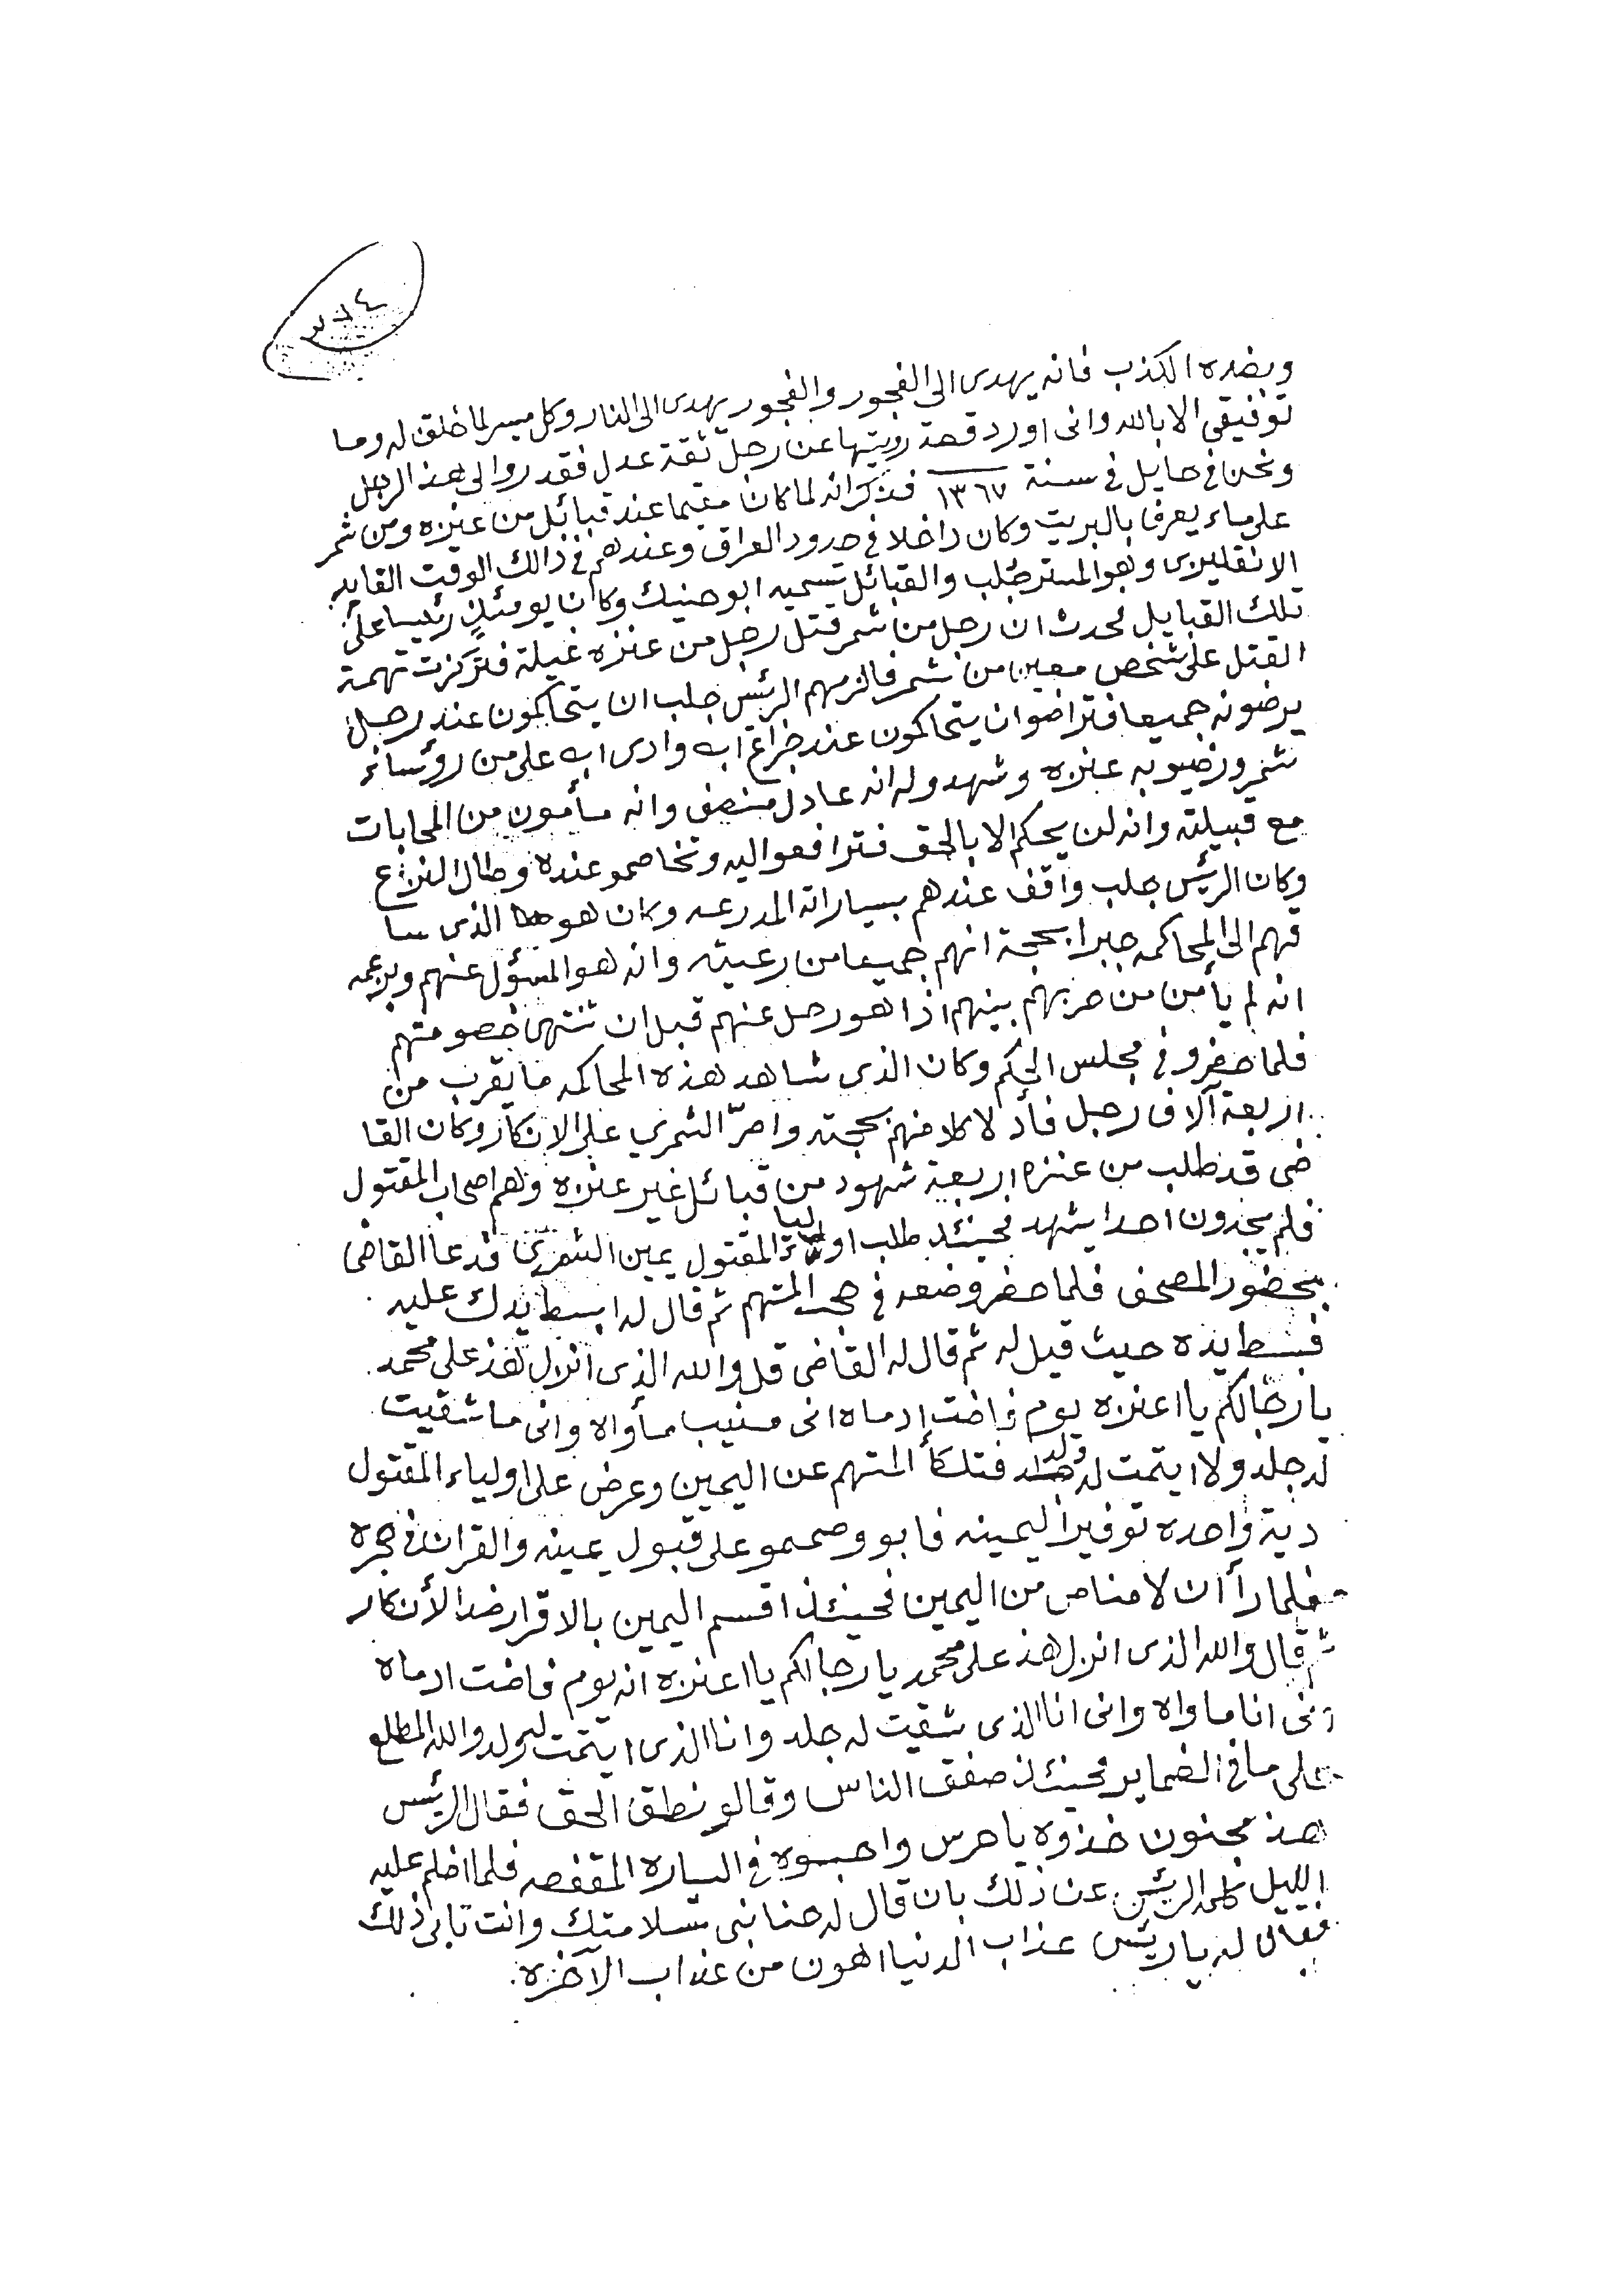 ٣٧٤
وبضده الكذب فانه يهدى الى الفجور والفجور يهدى الى النار وكل ميسر لما خلق له وما
توفيقي الا بالله وانى اورد قصة رويتها عن رجل ثقة عدل فقد روا لى هذ الرجل
ونحن في حايل في سنة ١٣٦٧ فذكر انه لما كان مقيما عند قبائل من عنزه ومن شمر
على ماء يعرف بالبريت وكان داخلا في حدود العراق وعندهم في ذالك الوقت القايد
الانقليزى وهو المستر جلب والقبائل تسميه ابو حنيك وكان يومئذٍ رئيسا على
تلك القبايل فحدث ان رجل من شمر قتل رجل من عنزه غيلة فتركزت تهمة
القتل على شخص معين من شمر فالزمهم الرئيس جلب ان يتحاكمون عند رجل
يرضونه جميعا فتراضوا ان يتحاكمون عند اب وادى اب على من رؤساء
شمر ورضيو به عنزه وشهدو له انه عادل منصف وانه مأمون من المحابات
مع قبيلته وانه لن يحكم الا بالحق فترافعوا اليه وتخاصمو عنده وطال النزاع
وكان الرئيس جلب واقف عندهم بسياراته المدرعه وكان هو الذى سا
قهم الى المحاكمه جبرا بحجة انهم جميعا من رعيته وانه هو المسؤل عنهم وبزعمه
انه لم يأمن من حربهم بينهم اذا هو رحل عنهم قبل ان تنتهى خصومتهم
فلما حضرو في مجلس الحكم وكان الذى شاهد هذه المحاكمه ما يقرب من
اربعة آلاف رجل فأدلا كلا منهم بحجته واصرّ الشمري على الانكار وكان القا
ضى قد طلب من عنزه اربعة شهود من قبائل غير عنزه وهم اصحاب المقتول
فلم يجدون احدا يشهد فحينئذ طلب اولياء المقتول يمين الشمري فدعا القاضى
بحضور المصحف فلما حضر وضعه في حجر المتهم ثم قال له ابسط يدك عليه
فبسط يده حيث قيل له ثم قال له القاضى قل والله الذى انزل هذ على محمد
يا رجالكم يا اعنزه يوم فاضت ادماه انى منيب مأواه وانى ما شقيت
له جلد ولا ايتمت له ولد فتلكأ المتهم عن اليمين وعرض على اولياء المقتول
دية واحده توفيرا ليمينه فابو وصممو على قبول يمينه والقران في حجره
فلما رأ ان لا مناص من اليمين فحينئذ اقسم اليمين بالاقرار ضد الأنكار
ثم قال والله الذى انزل هذ على محمد يا رجالكم يا اعنزه انه يوم فاضت ادماه
انى انا ماواه وانى انا الذى شقيت له جلد وانا الذى ايتمت له ولد والله المطلع
على ما في الضماير فحينئذ صفق الناس وقالو نطق الحق فقال الرئيس
هذ مجنون خذوه يا حرس واحبسوه في السياره المقفصه فلما اظلم عليه
الليل كلمه الرئيس عن ذلك بان قال له حنا نبى سلامتك وانت تابى ذلك
فقال له يا رئيس عذاب الدنيا اهون من عذاب الآخره.